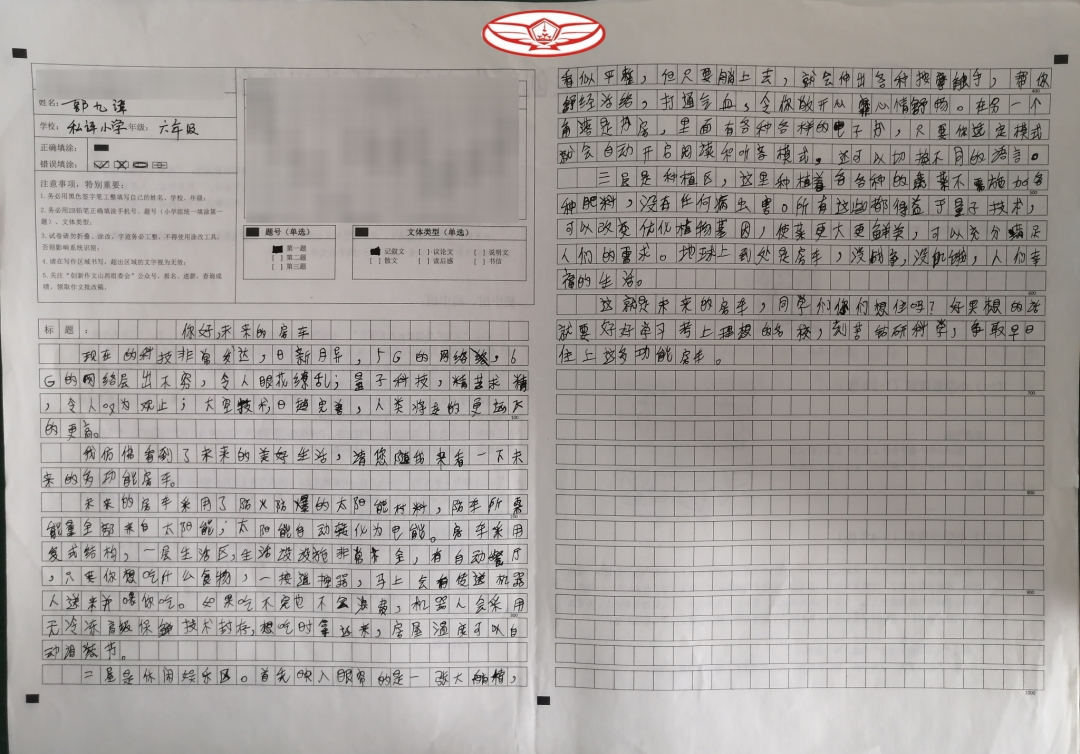 姓名：郭九泽
学校：私评小学 年级：六年级
正确填涂：
错误填涂：
注意事项，特别重要：
1.务必用黑色签字笔工整填写自己的姓名、学校、年级；
2.务必用2B铅笔正确填涂手机号、题号（小学组统一填涂第一
题）、文体类型；
3.试卷请勿折叠、涂改，字迹务必工整，不得使用涂改工具，
否则影响系统识别；
4.请在写作区域书写，超出区域的文字视为无效；
5.关注“创新作文山西组委会”公众号，报名、进群、查询成
绩、领取作文批改稿。
题号（单选）
第一题
[ ] 第二题
[ ] 第三题
文体类型（单选）
记叙文 [ ] 议论文 [ ] 说明文
[ ] 散文 [ ] 读后感 [ ] 书信
标 题 ：
你好，未来的房车
现在的科技非常发达，日新月异，5G的网络，6
G的网络层出不穷，令人眼花缭乱；量子科技，精益求精
，令人叹为观止；太空技术日趋完善，人类将走的更远飞
的更高。
我仿佛看到了未来的美好生活，请您随我来看一下未
来的多功能房车。
未来的房车采用了防火防爆的太阳能材料，房车所需
能量全部来自太阳能；太阳能自动转化为电能。房车采用
复式结构，一层生活区，生活设施非常齐全，有自动餐厅
，只要你想吃什么食物，一按遥控器，马上会有传送机器
人送来并喂你吃。如果吃不完也不会浪费，机器人会采用
无冷冻高级保鲜技术封存，想吃时拿出来，房屋温度可以自
动调节。
二层是休闲娱乐区。首先映入眼帘的是一张大的椅，
看似平整，但只要躺上去，就会伸出各种按摩触手，帮你
舒经活络，打通气血，令你放开从心情舒畅。在另一个
角落是书房，里面有各种各样的电子书，只要你选定模式
就会自动开启阅读和听客模式。还可以切换不同的语言。
三层是种植区，这里种植着各种的蔬菜不需施加各
种肥料，没有任何病虫害。所有这些都得益于量子技术，
可以改变优化植物基因，使菜更大更鲜美，可以充分满足
人们的要求。地球上到处是房车，没战争，没饥饿，人们幸
福的生活。
这就是未来的房车，同学们你们想住吗？好果想的话
就要好好学习考上理想的名校，刻苦钻研科学，争取早日
住上这多功能房车。
100
200
300
400
500
600
700
800
900
1000